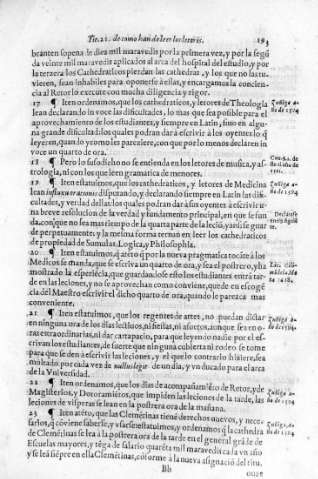 Tit. 21. de como han de leer los letores. 193
branten sopena de diez mil maravedis por la primera vez, y por la segũ
da veinte mil maravedis aplicados al arca del hospital del estudio, y por
la tercera los Cathedraticos pierdan las cathedras, y los que no las tu-
vieren, sean inhabiles para oponerse à ellas, y encargamos la concien-
cia al Retor lo execute con mucha diligencia y rigor.
17 ¶ Iten ordenamos, que los cathedraticos, y letores de Theologia
lean declarando in voce las dificultades, lo mas que sea posible para el
aprovechamiento de los estudiantes, y siempre en Latin, sino en algu-
na grande dificultad los quales podran dar à escrivir à los oyentes lo q̃
leyeren, quando yr como les pareciere, con que por lo menos declaren in
voce un quarto de ora.
18 ¶ Pero lo susodicho no se entienda en los letores de musica, y as-
trologia, ni con los que leen gramatica de menores.
19 ¶ Iten estatuimos, que los cathedraticos, y letores de Medicina
lean disputando, y declarando siempre en Latin las difi-
cultades, y verdad dellas los quales podran dar à sus oyentes à escrivir u-
na breve resolucion de la verdad y fundamento principal, en que se fun
da, con que no sea mas tiempo de la quarta parte de la leciõ, y asi se guar
de perpetuamente: y la mesma forma tengan en leer los cathedraticos
de propiedad de Sumulas, Logica, y Philosophia.
20 ¶ Iten estatuimos, q̃ atẽto q̃ por la nueva pragmatica tocãte à los
Medicos se manda, que se escriva un quarto de ora, y sea el postrero, y ha
mostrado la esperiẽcia, que guardandose esto los estudiantes entrã tar-
de en las leciones, y no se aprovechan como conviene, quede en escogẽ
cia del Maestro escrivir el dicho quarto de ora, quando le parezca mas
conveniente.
21 ¶ Iten estatuimos, que los regentes de artes, no puedan dictar
en ninguna ora de los dias lectivos, ni fiestas, ni asuetos, aunque sea en o-
ras extraordinarias, ni dar cartapacio, para que leyendo nadie por el es-
crivan los estudiantes, de suerte que ninguna cubierta ni rodeo se tome
para que se den à escrivir las leciones, y el que lo contrario hiziere, sea
multado por cada vez de un dia, y un ducado para el arca
de la Vniversidad.
22 ¶ Iten ordenamos, que los dias de acompañamiẽto de Retor, y de
Magisterios, y Doctoramiẽtos, que impiden las leciones de la tarde, las
leciones de visperas se lean en la postrera ora de la mañana.
23 ¶ Iten atẽto, que las Clemẽtinas tiene derechos nuevos, y nece-
sarios, q̃ conviene saberse, y asi estatuimos, y ordenamos q̃ la cathedra
de Clemẽtinas se lea à la postrera ora de la tarde en el general grãde de
Escuelas mayores, y tẽga de salario quarẽta mil maravedis cada vn año
y se leã siẽpre en ella Clemẽtinas, cõforme à la nueva asignaciõ del titu-
Bb
Zuñiga a-
ño de 1594.
Zuñiga a-
ño de 1594.
Zuñiga a-
ño de 1594.
Zuñiga a-
ño de 1594.